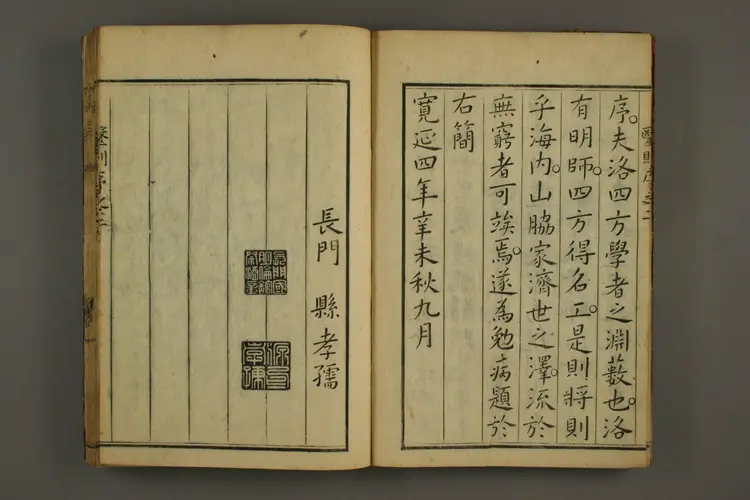 醫則序之二
序。夫洛四方學者之淵藪也。洛
有明師。四方得名工。是則將則
乎海内。山脇家濟世之澤。流於
無窮者可竢焉。遂為勉病題於
右簡
寛延四年辛未秋九月
長門 縣孝孺